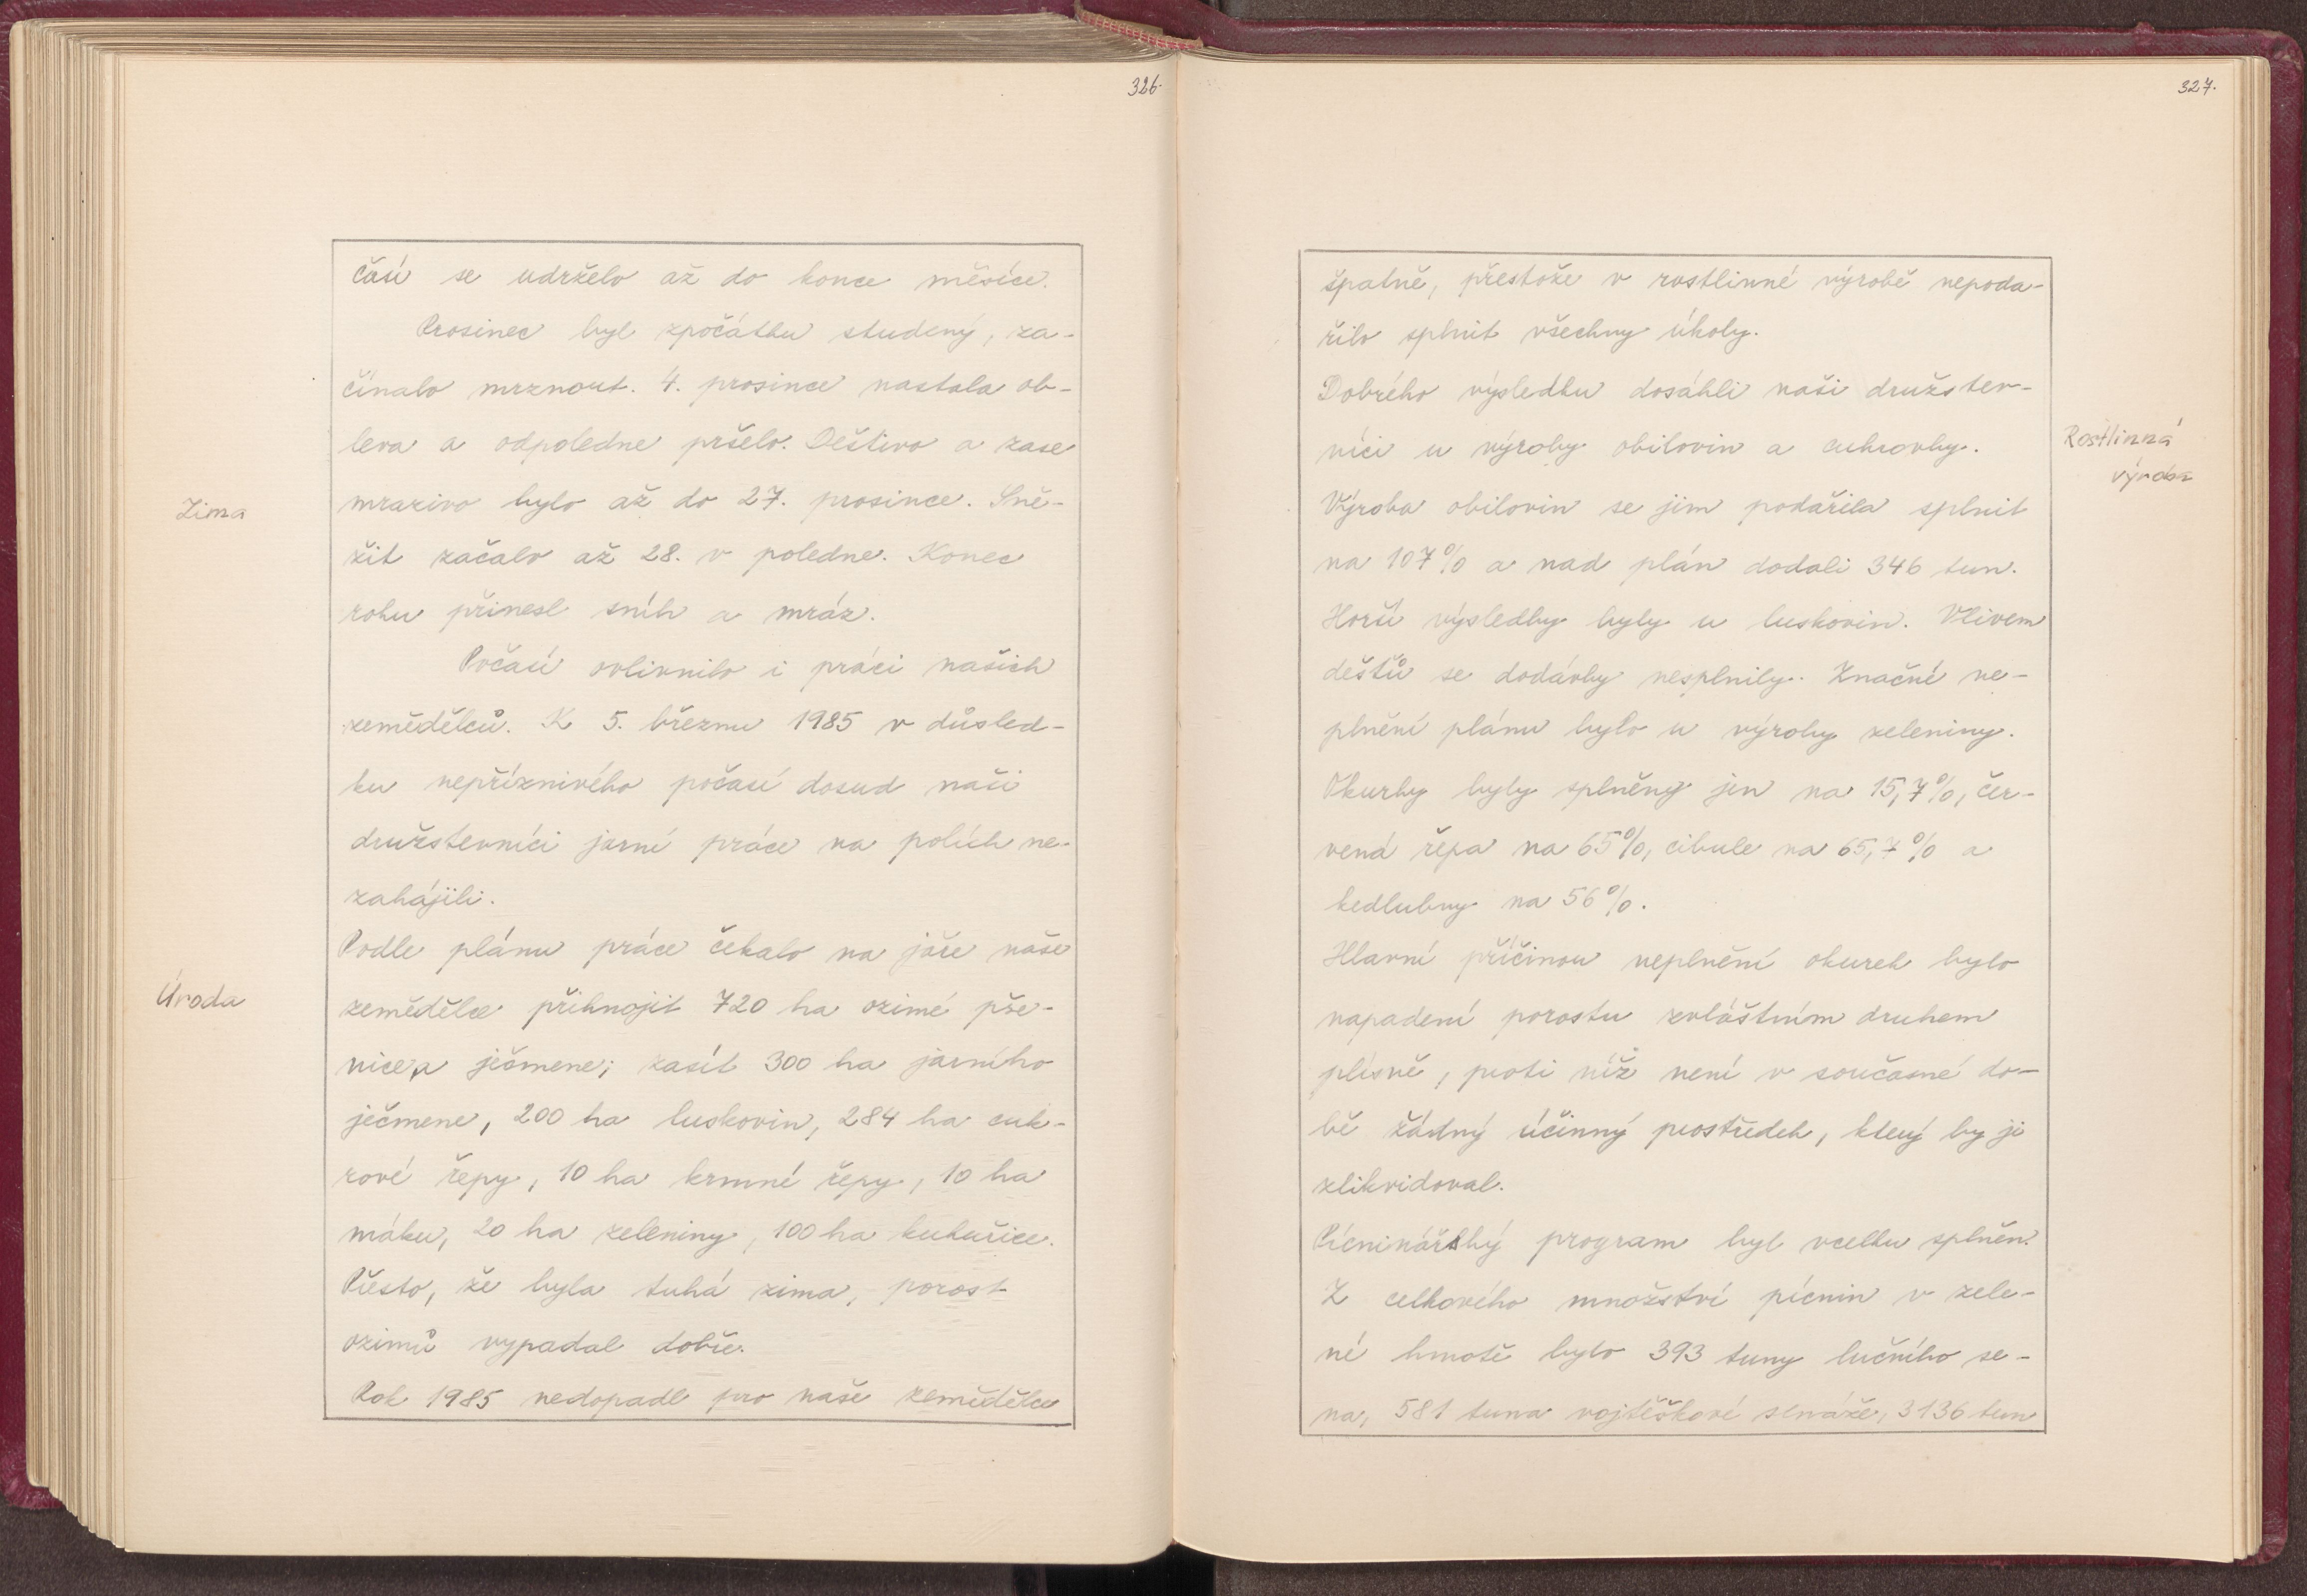 326.
časí se udrželo až do konce měsíce.
Prosinec byl zpočátku studený, za-
čínalo mrznout. 4. prosince nastala ob-
leva a odpoledne pršelo. Deštivo a zase
Zima
mrazivo bylo až do 27. prosince. Sně-
žit začalo až 28. v poledne. Konec
roku přinesl sníh a mráz.
Počasí ovlivnilo i práci našich
zemědělců. K 5. březnu 1985 v důsled-
ku nepříznivého počasí dosud naši
družstevníci jarní práce na polích ne-
zahájili.
Podle plánu práce čekalo na jaře naše
Úroda
zemědělce přihnojit 720 ha ozimé pše-
nice a ječmene; zasít 300 ha jarního
ječmene, 200 ha luskovin, 284 ha cuk-
rové řepy, 10 ha krmné řepy, 10 ha
máku, 20 ha zeleniny, 100 ha kukuřice.
Přesto, že byla tuhá zima, porost
ozimů vypadal dobře.
Rok 1985 nedopadl pro naše zemědělce
327.
špatně, přestože v rostlinné výrobě nepoda-
řilo splnit všechny úkoly.
Dobrého výsledku dosáhli naši družstev-
níci u výroby obilovin a cukrovky.
Rostlinná
výroba
Výroba obilovin se jim podařila splnit
na 107% a nad plán dodali 346 tun.
Horší výsledky byly u luskovin. Vlivem
dešťů se dodávky nesplnily. Značné ne-
plnění plánu bylo u výroby zeleniny.
Okurky byly splněny jen na 15,7%, čer-
vená řepa na 65%, cibule na 65,7% a
kedlubny na 56%.
Hlavní příčinou neplnění okurek bylo
napadení porostu zvláštním druhem
plísně, proti níž není v současné do-
bě žádný účinný prostředek, který by ji
zlikvidoval.
Pícninářský program byl vcelku splněn.
Z celkového množství pícnin v zele-
né hmotě bylo 393 tuny lučního se-
na, 581 tuna vojtěškové senáže, 3136 tun